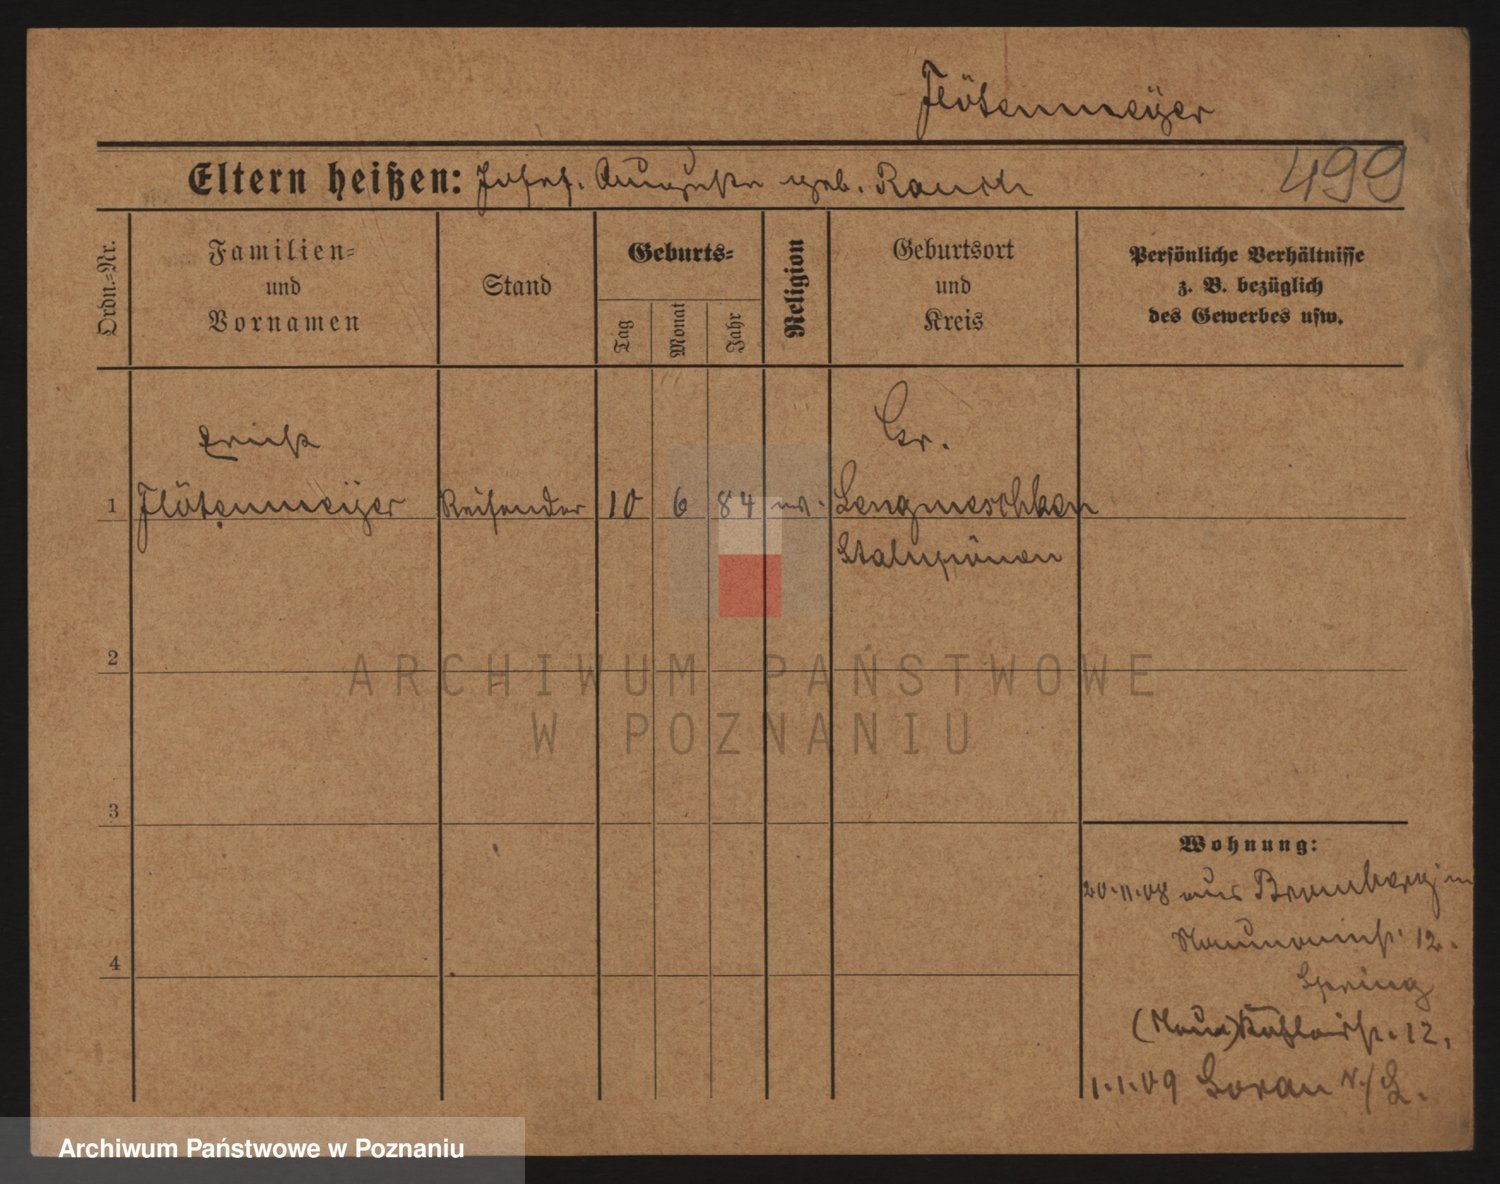 Flötenmeÿer
Eltern heißen: Josef. Auguste geb. Rauch
499
Ordn.-Nr.
Familien-
und
Vornamen
Stand
Geburts-
Tag
Monat
Jahr
Religion
Geburtsort
und
Kreis
Persönliche Verhältnisse
z. B. bezüglich
des Gewerbes usw.
Gr.
1 Flötenmeÿer Reisender 10 6 84 ev. Lengmeschken
Stalupönen
2
3
4
Wohnung:
20.11.08 aus Bromberg in
12.
Spring
(Neue) 12,
1.1.09 Soran N/L.
ARCHIWUM PAŃSTWOWE
W POZNANIU
Archiwum Państwowe w Poznaniu